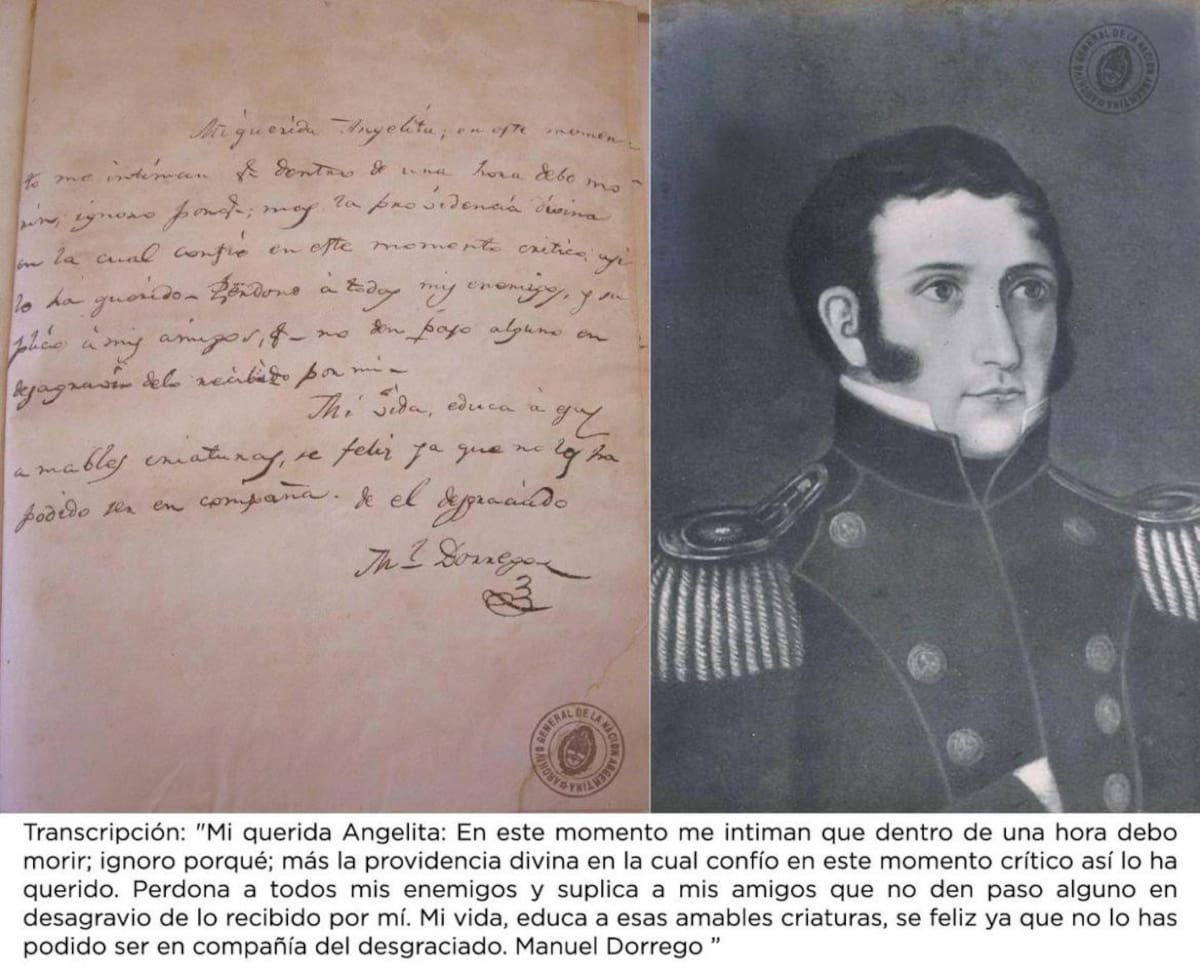 Mi querida Angelita; en este momen-
to me intiman q.e dentro de una hora debo mo-
rir, ignoro porq.e; mas la providencia divina
en la cual confio en este momento critico asi
lo ha querido— Perdono à todos mis enemigos, y su
plico à mis amigos, q.e no den paso alguno en
desagravio delo recibido por mi—
Mi vida, educa à esas
amables criaturas, se feliz ya que no lo has
podido ser en compañia. de el desgraciado
M.l Dorrego
ARCHIVO GENERAL DE LA NACION ARGENTINA
ARCHIVO GENERAL DE LA NACION ARGENTINA
Transcripción: "Mi querida Angelita: En este momento me intiman que dentro de una hora debo
morir; ignoro porqué; más la providencia divina en la cual confío en este momento crítico así lo ha
querido. Perdona a todos mis enemigos y suplica a mis amigos que no den paso alguno en
desagravio de lo recibido por mí. Mi vida, educa a esas amables criaturas, se feliz ya que no lo has
podido ser en compañía del desgraciado. Manuel Dorrego ”